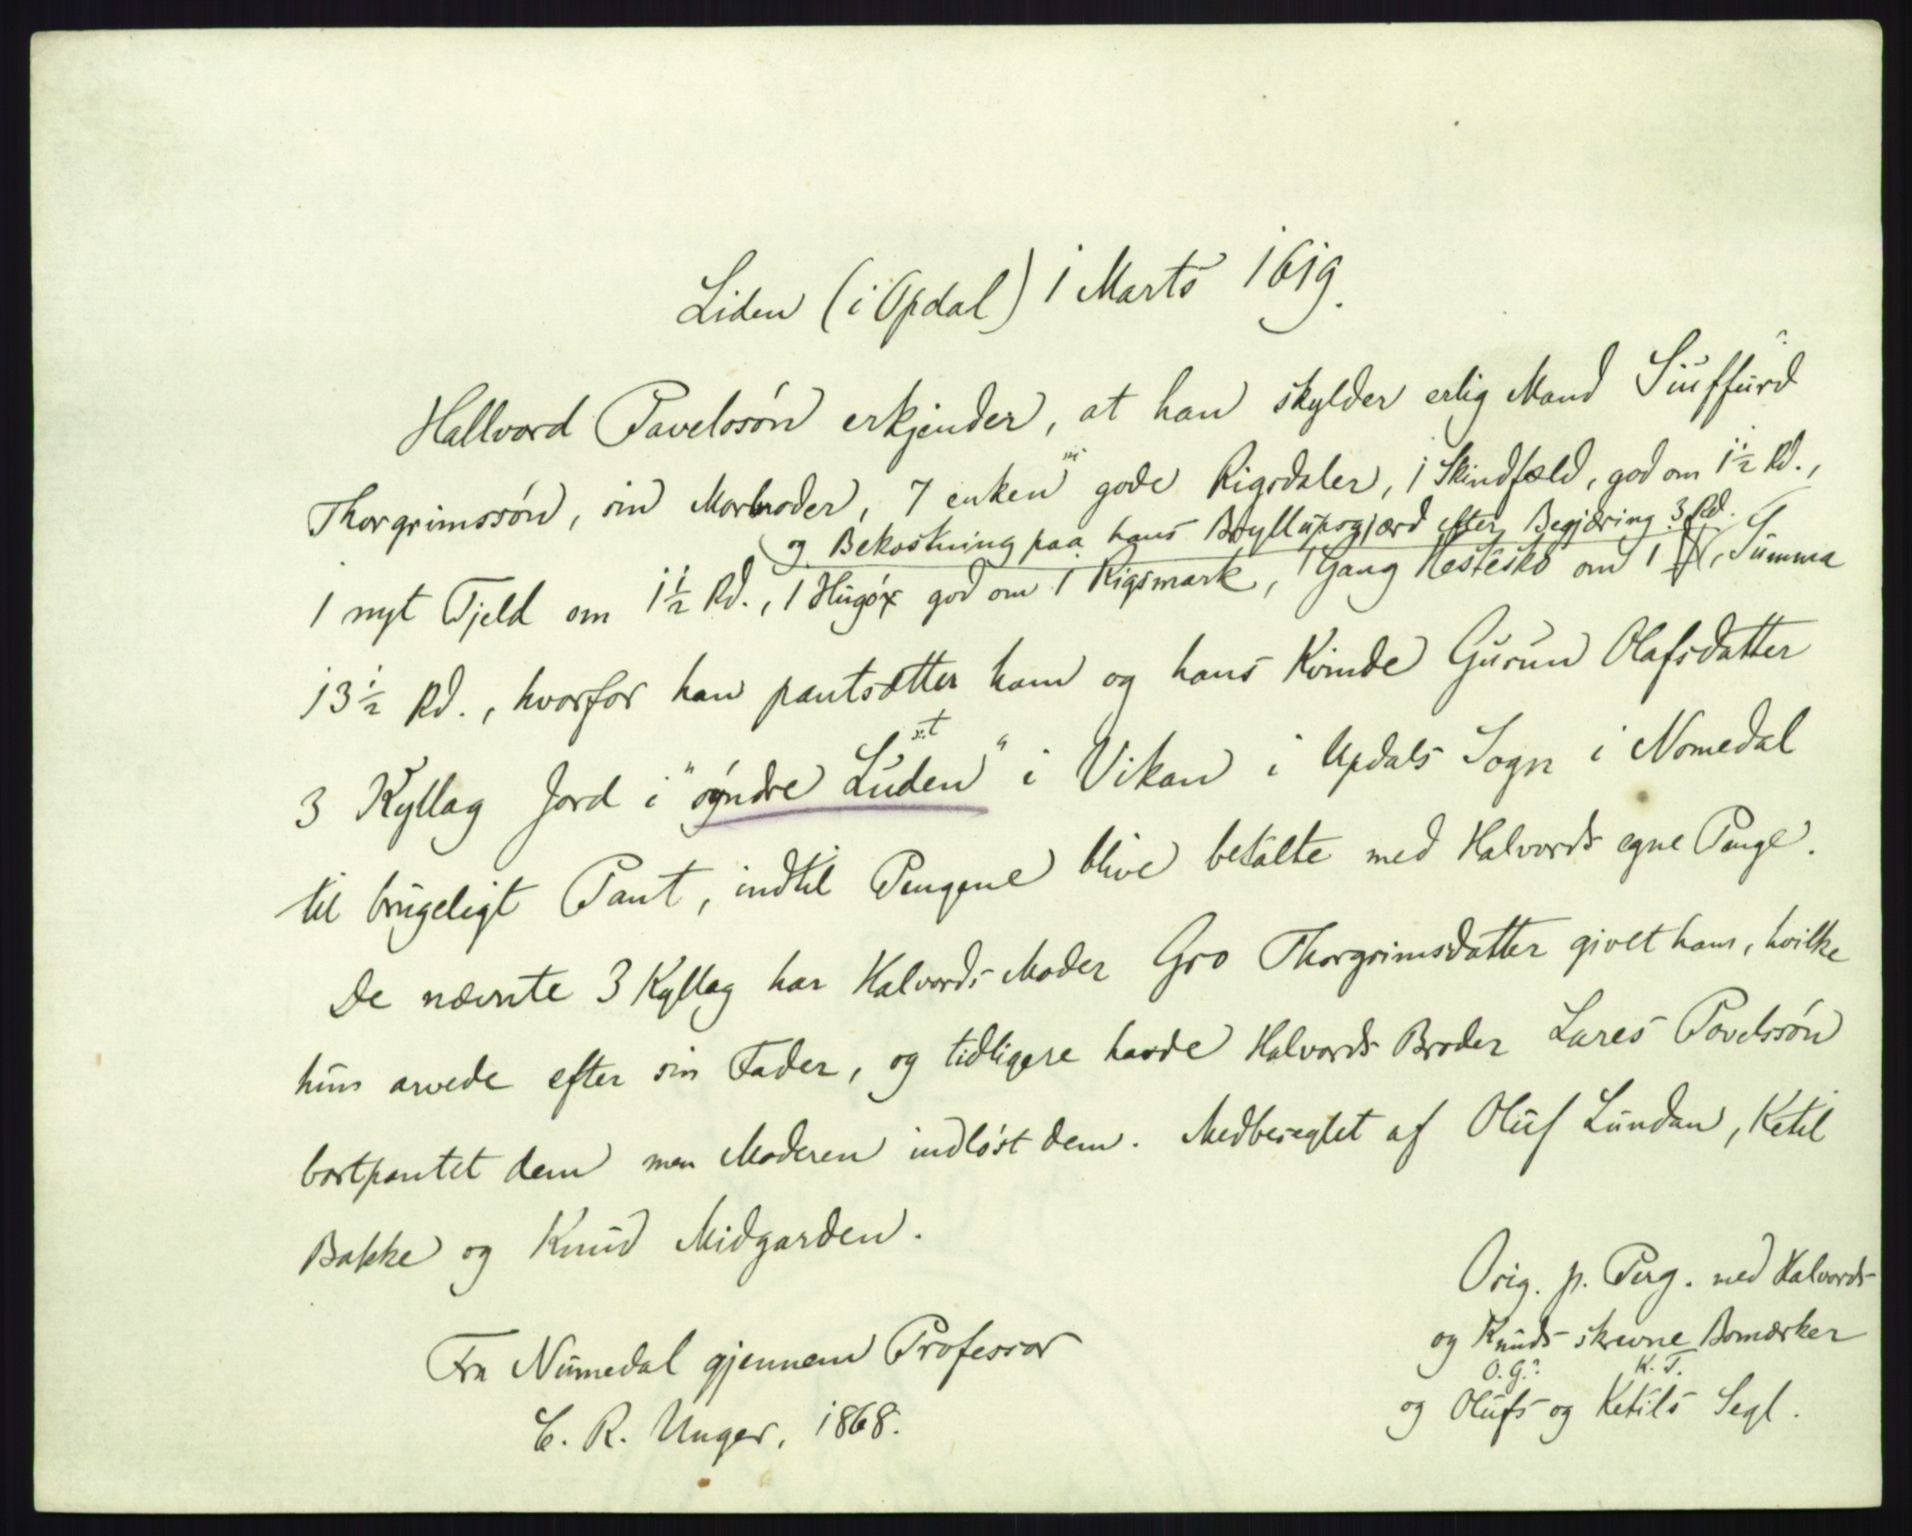 Liden (i Opdal) 1 Marts 1619.
Hallvord Pavelssøn erkjender, at han skylder erlig Mand Siuffurd
Thorgrimssøn, sin Morbroder, 7 enken gode Rigsdaler, 1 Skindfæld, god om 1½ Rd.,
og Bekostning paa hans Bryllupsgjærd efter Begjæring 3 Rd.
1 nyt Tjeld om 1½ Rd., 1 Hugøx god om 1 Rigsmark, 1 Gang Hestesko om 1 , Summa
13½ Rd., hvorfor han pantsætter ham og hans Kvinde Gurun Olafsdatter
3 Kyllag Jord i "øyndre Luden" i Vikan i Updals Sogn i Nomedal
til brugeligt Pant, indtil Pengene blive betalte med Halvords egne Penge.
De nævnte 3 Kyllag har Halvords Moder Gro Thorgrimsdatter givet ham, hvilke
hun arvede efter sin Fader, og tidligere havde Halvords Broder Lares Povelssøn
bortpantet dem men Moderen indløst dem. Medbeseglet af Oluf Lundan, Ketil
Bakke og Knud Midgarden.
Orig. p. Perg. med Halvords
og Knuds skrevne Bomærker
O. G? K. T.
og Olufs og Ketils Segl.
Fra Numedal gjennem Professor
C. R. Unger, 1868.